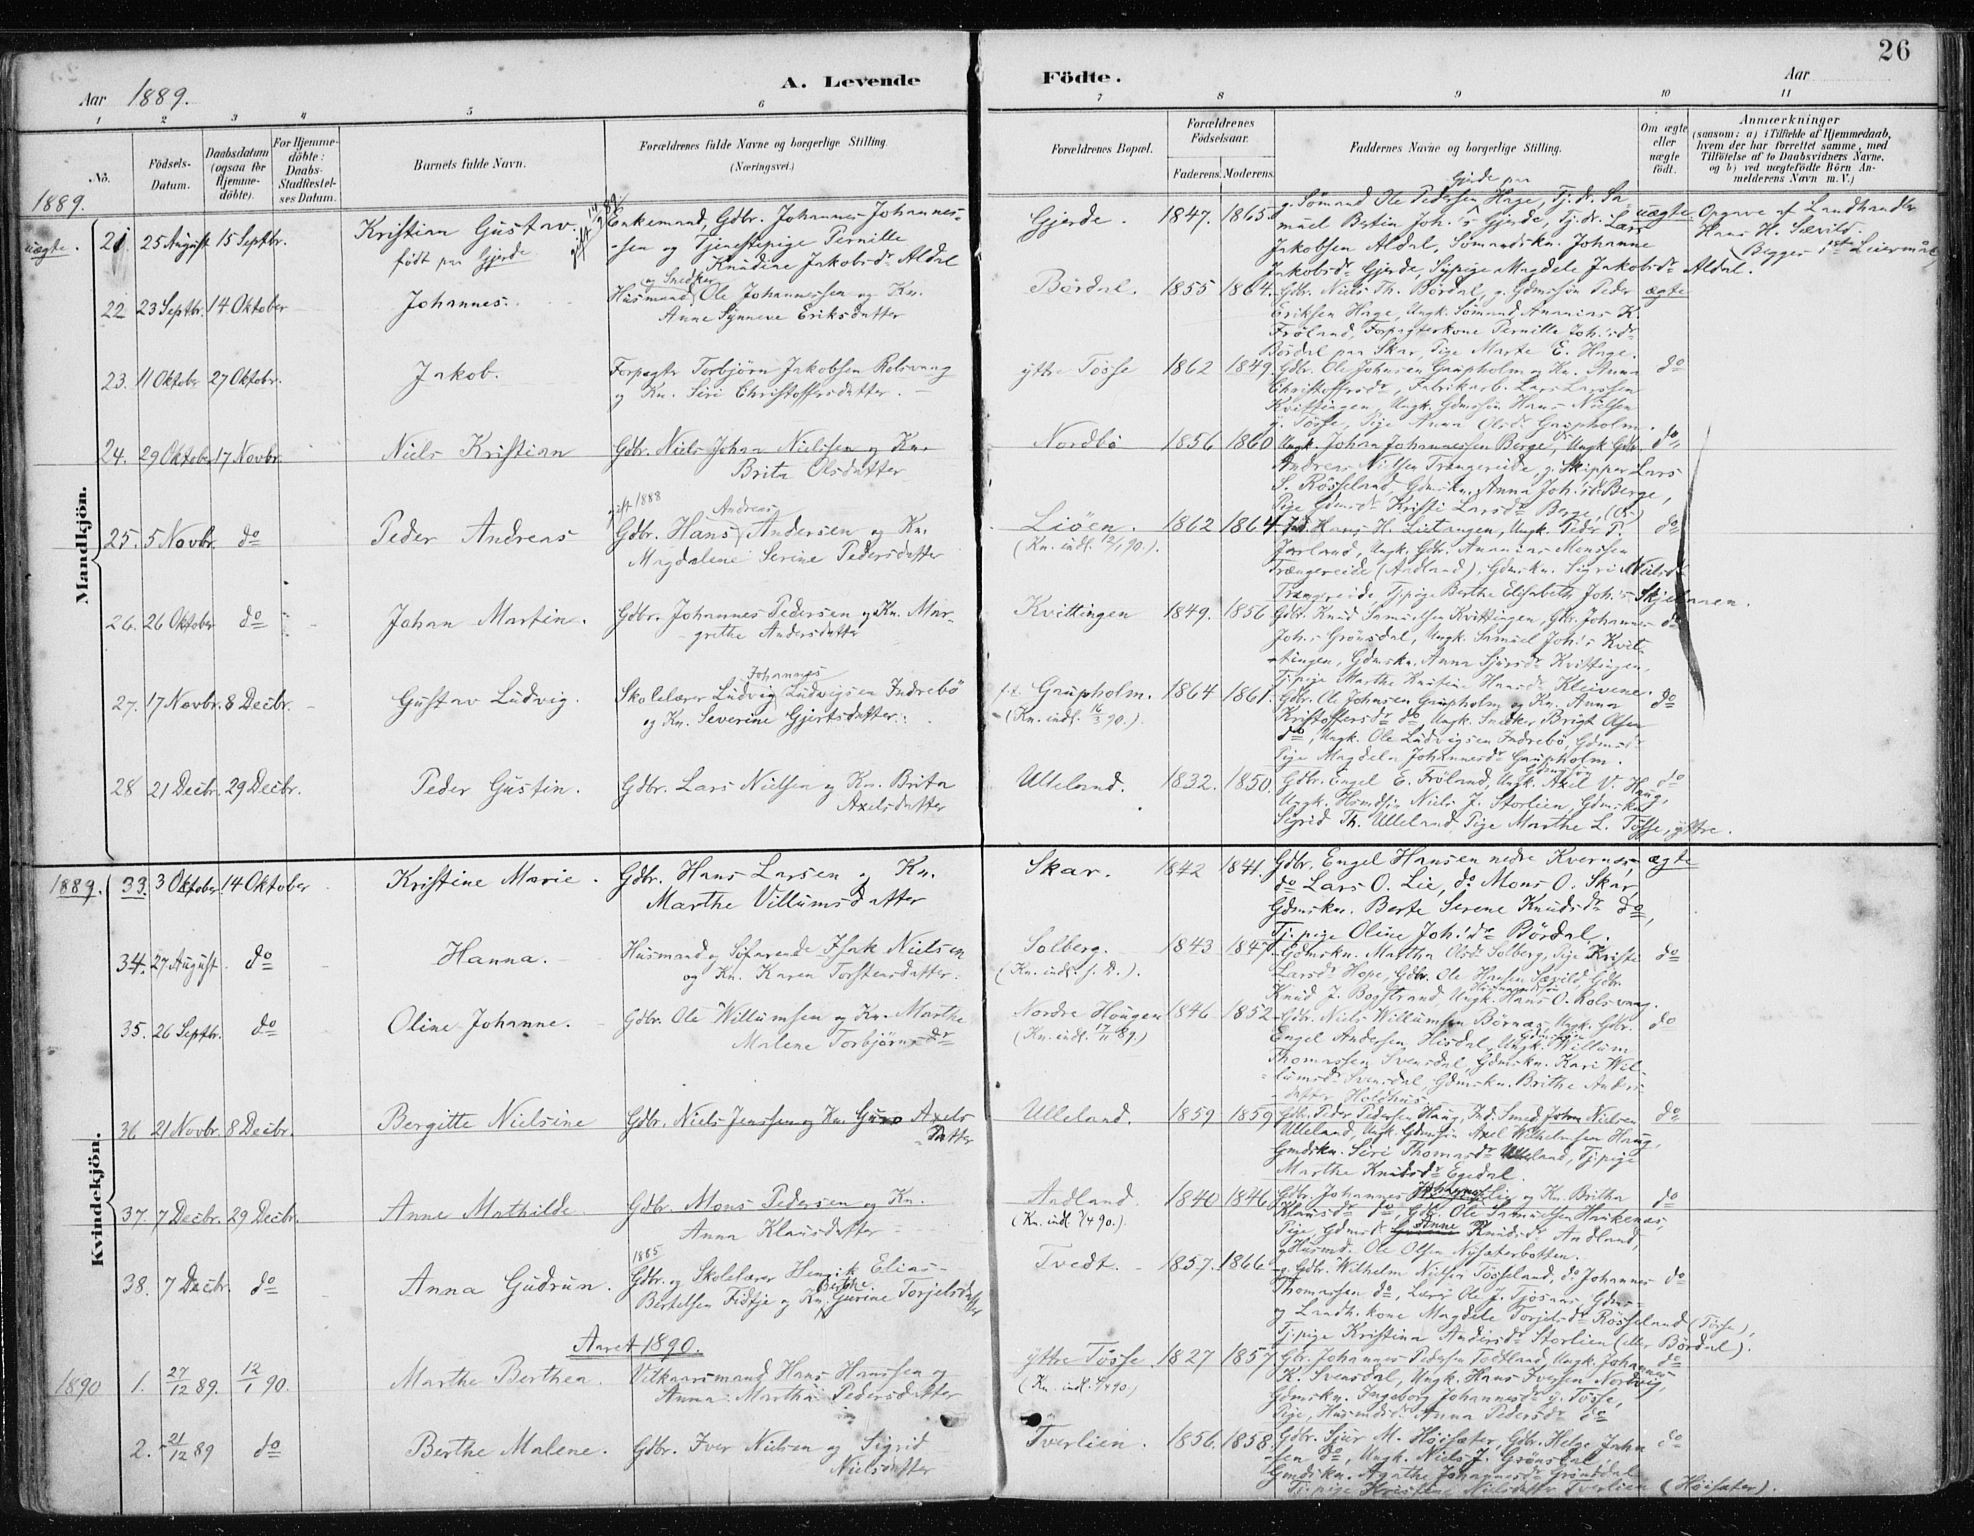 26
Aar 1889.
A. Levende Födte.
Aar
1 2 3 4 5 6 7 8 9 10 11
No.
Födsels-Datum.
Daabsdatum (ogsaa for Hjemmedöbte).
For Hjemmedöbte: Daabs-Stadfæstelses Datum.
Barnets fulde Navn.
Forældrenes fulde Navne og borgerlige Stilling.
(Næringsvei.)
Forældrenes Bopæl.
Forældrenes Födselsaar.
Faderens. Moderens.
Faddernes Navne og borgerlige Stilling.
Om ægte eller uægte födt.
Anmærkninger
(saasom: a) i Tilfælde af Hjemmedaab, hvem der har forrettet samme, med Tilföielse af to Daabsvidners Navne. og b) ved uægtefödte Börn Anmelderens Navn m. V.)
1889.
Mandkjön.
uægte. 21 25 August 15 Septbr. Kristian Gustav. født paa Gjerde
Enkemand, Gdbr. Johannes Johannes-
-sen og Tjenestepige Pernille
Knudine Jakobsdr Aldal
Gjerde. 1847. 1865.
g. Sömand Ole Pedersen Hage, Tj.dr. Sa-
muel Bertin Joh.s. Gjerde, Tj.dr. Lars
Jakobsen Aldal, Sömandskn. Johanne
Jakobsdr Gjerde, Sypige Magdele Jakobsdr Aldal.
uægte Opgave af Landhandler
Hans H. Sævild.
(Begges 1ste Leiermål)
22 23 Septbr. 14 Oktober Johannes.
og Snedker
Husmand Ole Johannessen og Kn.
Anne Synneve Eriksdatter
Bördal. 1855 1864.
Gdbr. Niels Th. Bördal, g. Gdmssön Peder
Eriksen Hage, Ungk. Sömand Ananias K.
Fröland, Forpagterkone Pernille Joh.'sdr
Bördal paa Skar, Pige Marte E. Hage.
ægte
23. 11 Oktober 27 Oktobr. Jakob.
Forpagtr Torbjörn Jakobsen Rolsvaag
og Kn. Siri Christoffersdatter.
ytre Tösse 1862 1849.
Gdbr. Ole Johnsen Grupholm og Kn. Anna
Christoffersdr, Fabrikarb. Lars Larssen
Kvittingen, Ungk. Gdmssön Hans Nielsen
y. Tösse, Pige Anna Olsdr Grupholm.
do
24. 29 Oktober 17 Novbr. Niels Kristian
Gdbr. Niels Johan Nielssen og Kn.
Brita Olsdatter
Nordbö 1856 1860
Ungk. Johan Johannessen Berge, Ungk. Gdbr.
Andreas Nilsen Trengereide, g. Skipper Lars
S. Rösseland, Gdmskn. Anna Joh.'sdr Berge,
Pige Gdmsdr Kristi Larsdr Berge, (Os)
do
25. 5 Novbr. do Peder Andreas
gift 1888 Andreas
Gdbr. Hans Andersen og Kn.
Magdalene Serine Pedersdatter
Liöen. (Kn. indl. 12/1 90.) 1862 1864
Hans H. Lietangen, Ungk. Peder P.
Jarland, Ungk. Gdbr. Ananias Monssen
Trængereide (Andland), Gdmskn. Sigri Nielsdr
Trengereide, Tj.pige Berthe Elisabeth Joh.'s Skjelanen.
do
26. 26 Oktober do Johan Martin.
Gdbr. Johannes Pedersen og Kn. Mar-
grethe Andersdatter
Kvittingen 1849. 1856
Gdbr. Knud Samuelsen Kvittingen, Gbr. Johannes
Joh.s Grönsdal, Ungk. Samuel Joh.'s Kvit-
tingen, Gdmskn. Anna Sjursdr Kvittingen,
Tj.pige Marthe Kristine Hansdr Kleivene.
do
27. 17 Novbr. 8 Decbr. Gustav Ludvig.
Johannes
Skolelærer Ludvig Ludvigsen Indrebö
og Kn. Severine Gjertsdatter.
Grupholm. (Kn. indl. 16/3 90.) 1864 1861.
Gdbr. Ole Johnsen Grupholm og Kn. Anna
Kristoffersdr do, Ungk. Snedker Brigt Olsen
do, Ungk. Ole Ludvigsen Indrebö, Gdmsdr
Pige Magdela Johannesdr Grupholm.
do
28 21 Decbr. 29 Decbr. Peder Gustin.
Gdbr. Lars Nielsen og Kn. Brita
Axelsdatter
Ulleland. 1832. 1850.
Gdbr. Engel E. Fröland, Ungk. Axel V. Haug,
Ungk. Hsmdssön Niels J. Storlien, Gdmskn.
Sigrid Th. Ulleland, Pige Marthe L. Tösse, ytre.
do
Kvindekjön.
1889. 33. 3 Oktober 14 Oktober Kristine Marie.
Gdbr. Hans Larsen og Kn.
Marthe Villumsdatter
Skar. 1842 1841.
Gdbr. Engel Hansen nedre Kvernes,
do Lars O. Lie, do Mons O. Skar,
Gdmskn. Berte Serene Knudsdr do,
Tj.pige Oline Joh.'dr Bördal.
ægte
34. 27 August. do Hanna.
Husmand og Söfarende Isak Nielsen
og Kn. Karen Torstensdatter.
Solberg. (Kn. indl. s. D.). 1843 1847
Gdmskn. Martha Olsdr Solberg, Pige Kristi
Larsdr Hope, Gdbr. Ole Hansen Sævild, Gdbr.
Knud J. Bogstrand, Ungk. Hans O. Rolsvaag.
do
35. 26 Septbr. do Oline Johanne.
Gdbr. Ole Willumsen og Kn. Marthe
Malene Torbjörnsdr
Nordre Hougen (Kn. indl. 17/11 89.) 1846 1852
Gdbr. Niels Willumsen Börnes, Ungk. Gdbr.
Engel Andersen Hisdal, Ungk. Willum
Thomassen Svensdal, Gdmskn. Kari Wil-
lumsdr Svensdal, Gdmskn. Brithe Anders-
datter Holdhus
do
36 21 Novbr. 8 Decbr. Bergitte Nielsine
Gdbr. Niels Jenssen og Kn. Guro Axels
Datter
Ulleland. 1859 1859
Gdbr. Peder Pedersen Haug, Ind. Smed John Nielsen
Ulleland, Ungk. Gdmssön Axel Wilhelmsen Haug,
Gmdskn. Siri Thomasdr Ulleland, Tj.pige
Marthe Knudsdr Egedal.
do
37. 7 Decbr. 29 Decbr. Anne Mathilde
Gdbr. Mons Pedersen og Kn.
Anna Klausdatter
Aadland. 1840 1846
Gdbr. Johannes Lie og Kn. Britha
Klausdr do, Gdbr. Ole Samuelsen Haukenes,
Pige, Gdmsdr Anne Knudsdr Aadland,
g. Husmd. Ole Olsen Nysæterbotten.
do
38. 7 Decbr. do Anna Gudrun.
1885
Gdbr. og Skolelærer Henrik Elias-
Berthe
Bertelsen Fidtje og Kn. Gurine Torjelsdatter
Tvedt. 1857. 1866
g. Gdbr. Wilhelm Nielsen Tösseland, do Johannes
Thomassen do, Lærer Ole J. Tjösaas, Gdms-
og Landh. kone Magdele Torjelsdr Rösseland (Tösse),
Tj.pige Kristina Andersdr Storlien (eller Bördal).
do
Aaret 1890.
1890 1. 27/12 89. 12/1 90. Marthe Berthea.
Vilkaarsmand Hans Hanssen og
Anna Martha Pedersdatter
ytre Tösse 1827 1857
Gbr. Johannes Pedersen Todtland, Ungk. Johannes
K. Svensdal, Ungk. Hans Iversen Nordvig,
Gdmskn. Ingeborg Johannesdr y. Tösse,
Pige, Husmdsdr Anna Pedersdr do
do
2. 21/12 89 do Berthe Malene.
Gdbr. Iver Nielsen og Sigrid
Nielsdatter
Tverlien. 1856. 1858.
Gdbr. Sjur M. Höisæter, Gdbr. Helge John-
sen do, Ungk. Niels J. Grönsdal,
Gmdskn. Agathe Johannesdr Grönsdal
Tj.pige Kristine Nielsdatter Tverlien (Höisæter).
do